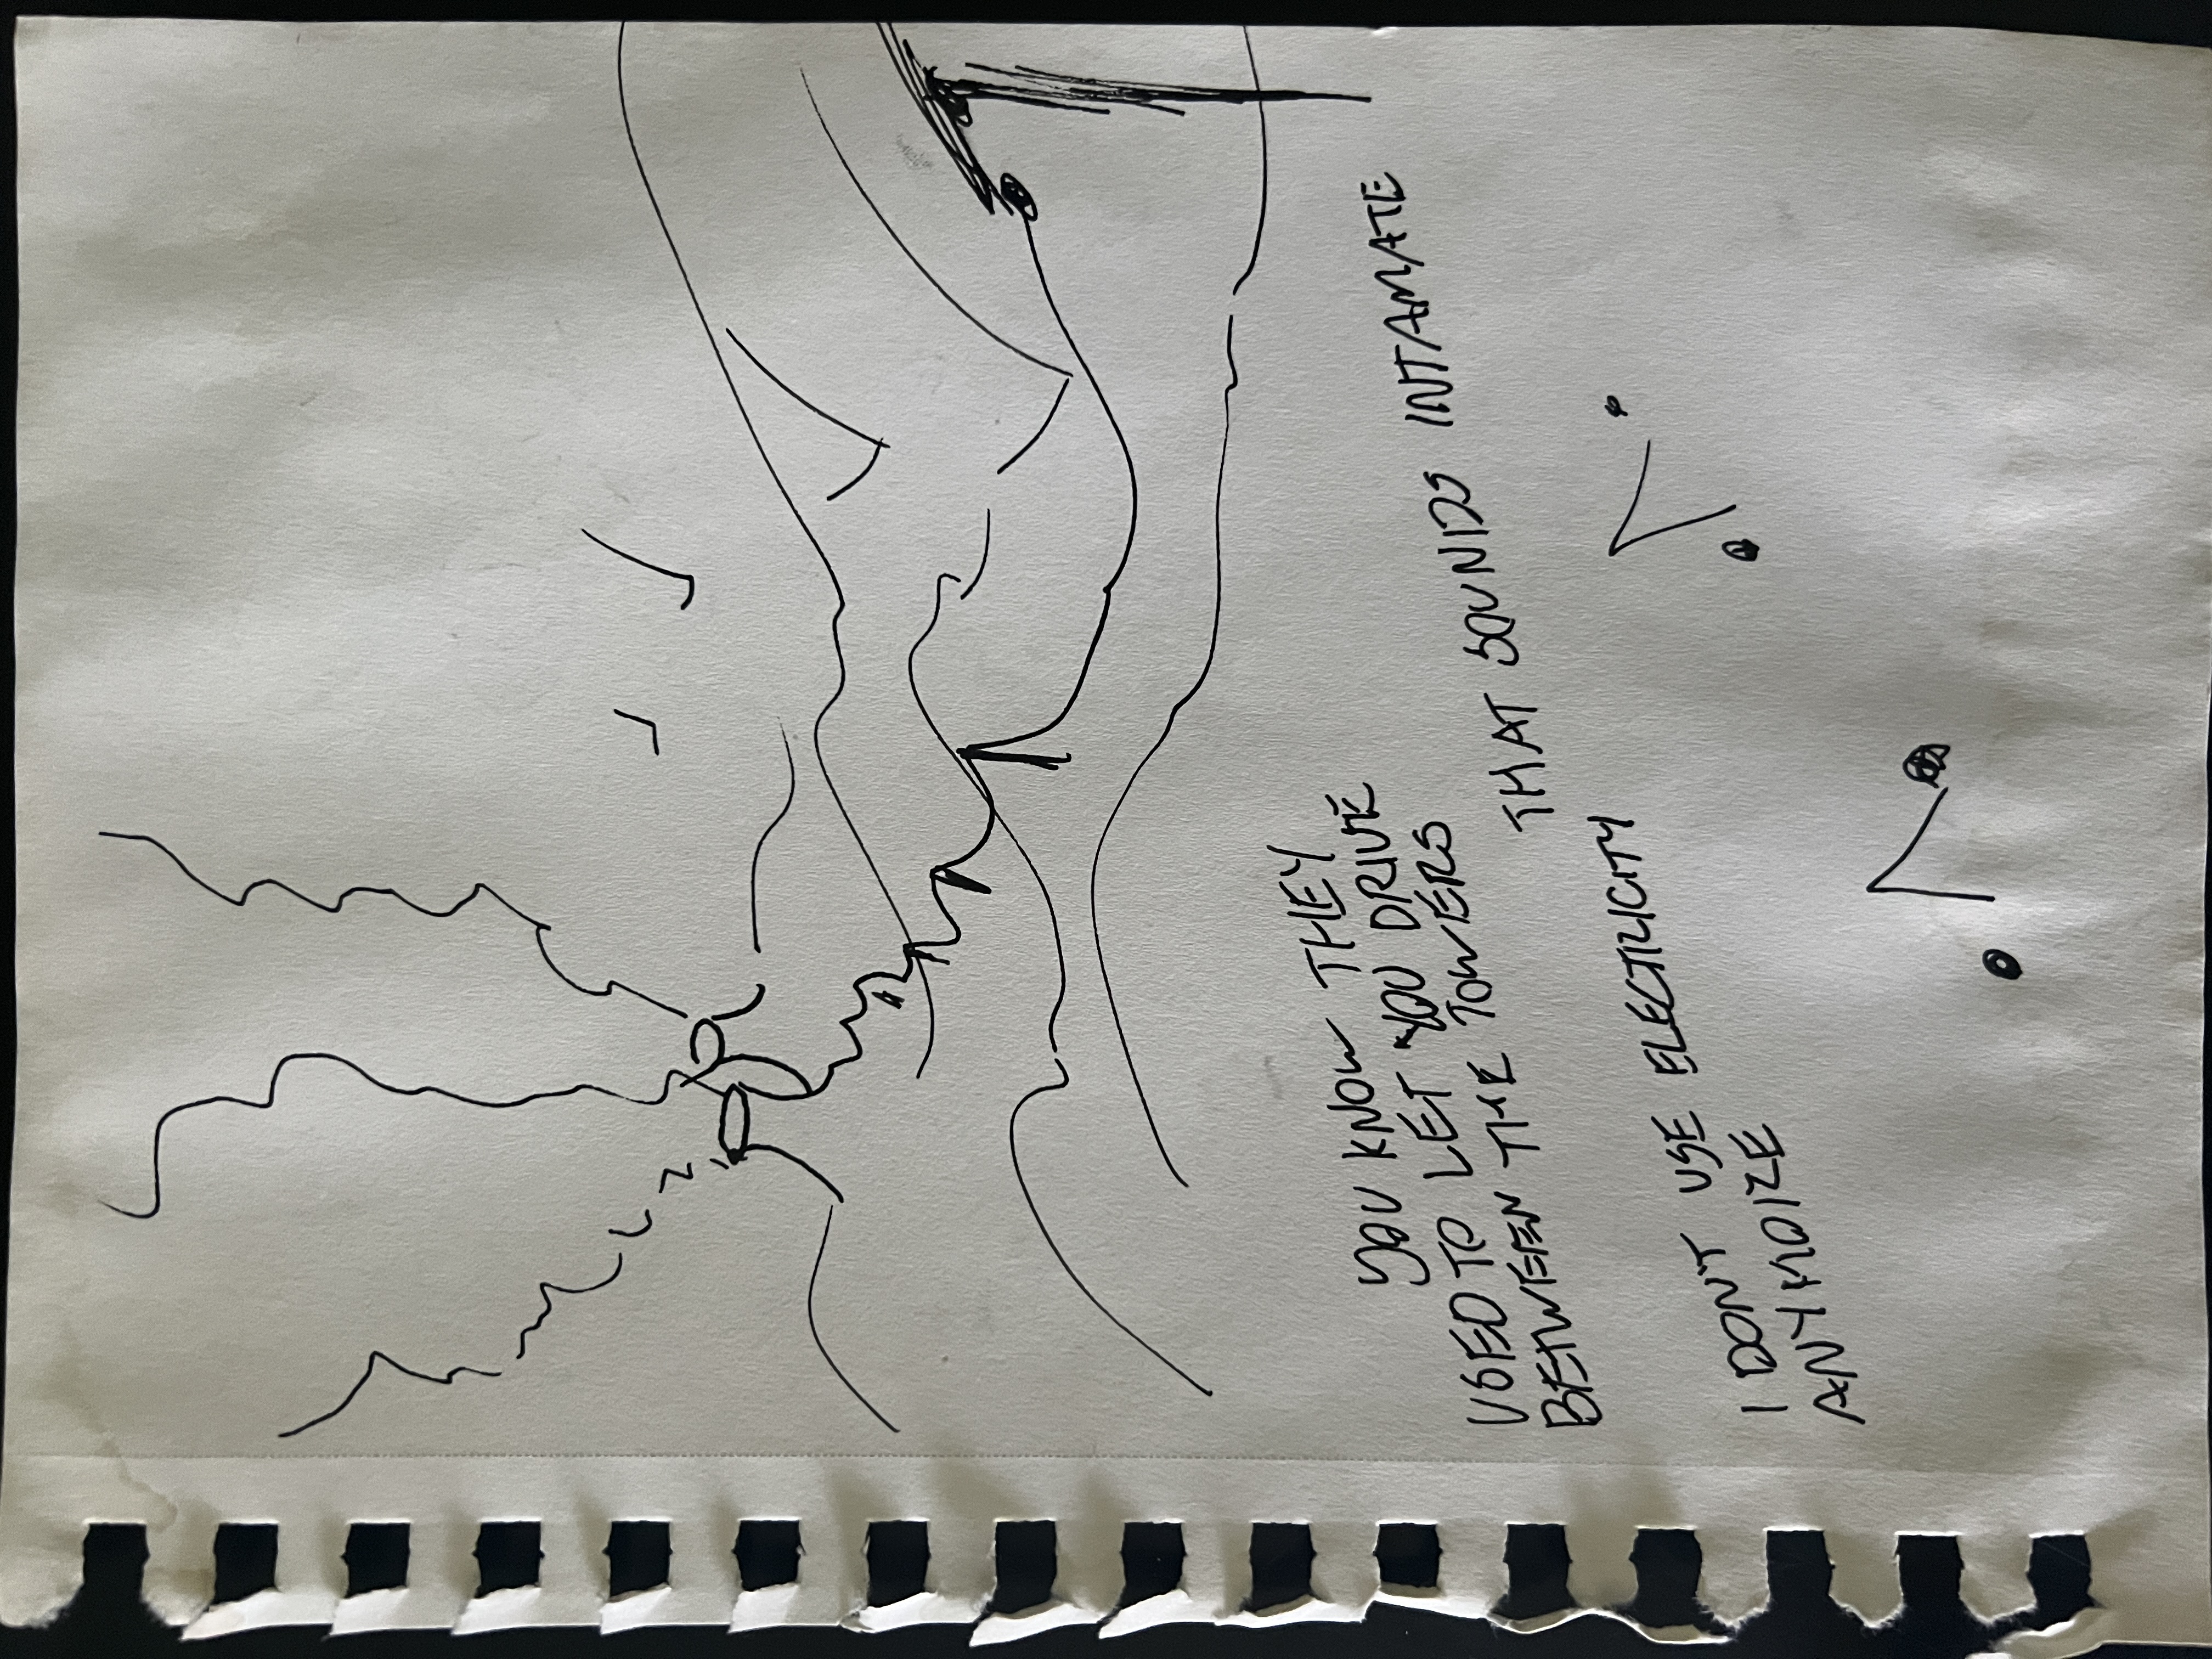 YOU KNOW THEY
USED TO LET YOU DRIVE
BETWEEN THE TOWERS
THAT SOUNDS INTAMATE
I DON'T USE ELECTRICITY
ANYMORE